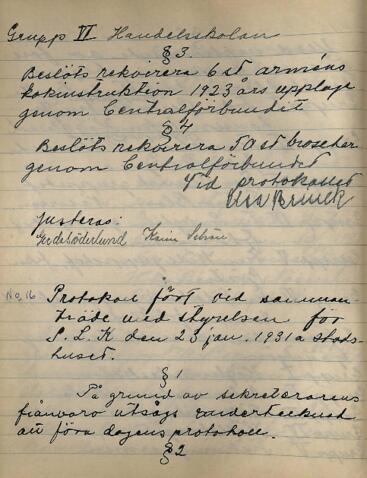 Grupp VI Handelsskolan
§ 3.
Beslöts rekvirera 6 st arméns
kokinstruktion 1923 års upplaga
genom Centralförbundet
§ 4
Beslöts rekvirera 50 st broscher
genom Centralförbundet
Vid protokollet
Brunck
justeras:
Gerda Söderlund Karin
No. 16 Protokoll fört vid samman-
träde med styrelsen för
S. L. K den 23 jan. 1931 a Stads-
huset.
§ 1
På grund av sekreterarens
frånvaro utsågs undertecknad
att föra dagens protokoll.
§ 2